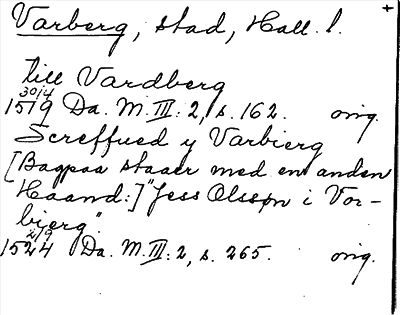 Varberg, stad, Hall. l. +
till Vardberg
30/4
1519 Da. M. III: 2, s. 162. orig.
Screffued y Varbierg
[Bagpaa staaer med en anden
Haand:] "Jess Olsspn i Vor-
bierg".
2/9
1524 Da. M. III: 2, s. 265. orig.